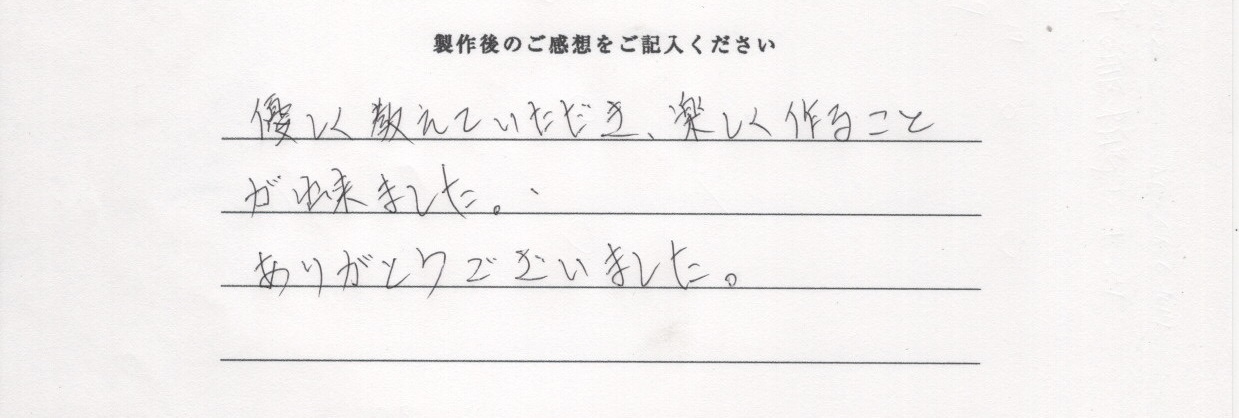 製作後のご感想をご記入ください
優しく教えていただき、楽しく作ること
が出来ました。
ありがとうございました。